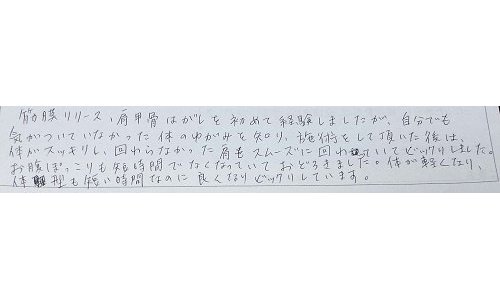 筋膜リリース、肩甲骨はがしを初めて経験しましたが、自分でも
気がついていなかった体のゆがみを知り、施術をして頂いた後は、
体がスッキリし、回わらなかった肩もスムーズに回わっていてビックリしました。
お腹ぽっこりも短時間でなくなっていておどろきました。体が軽くなり、
体型も短い時間なのに良くなりビックリしています。